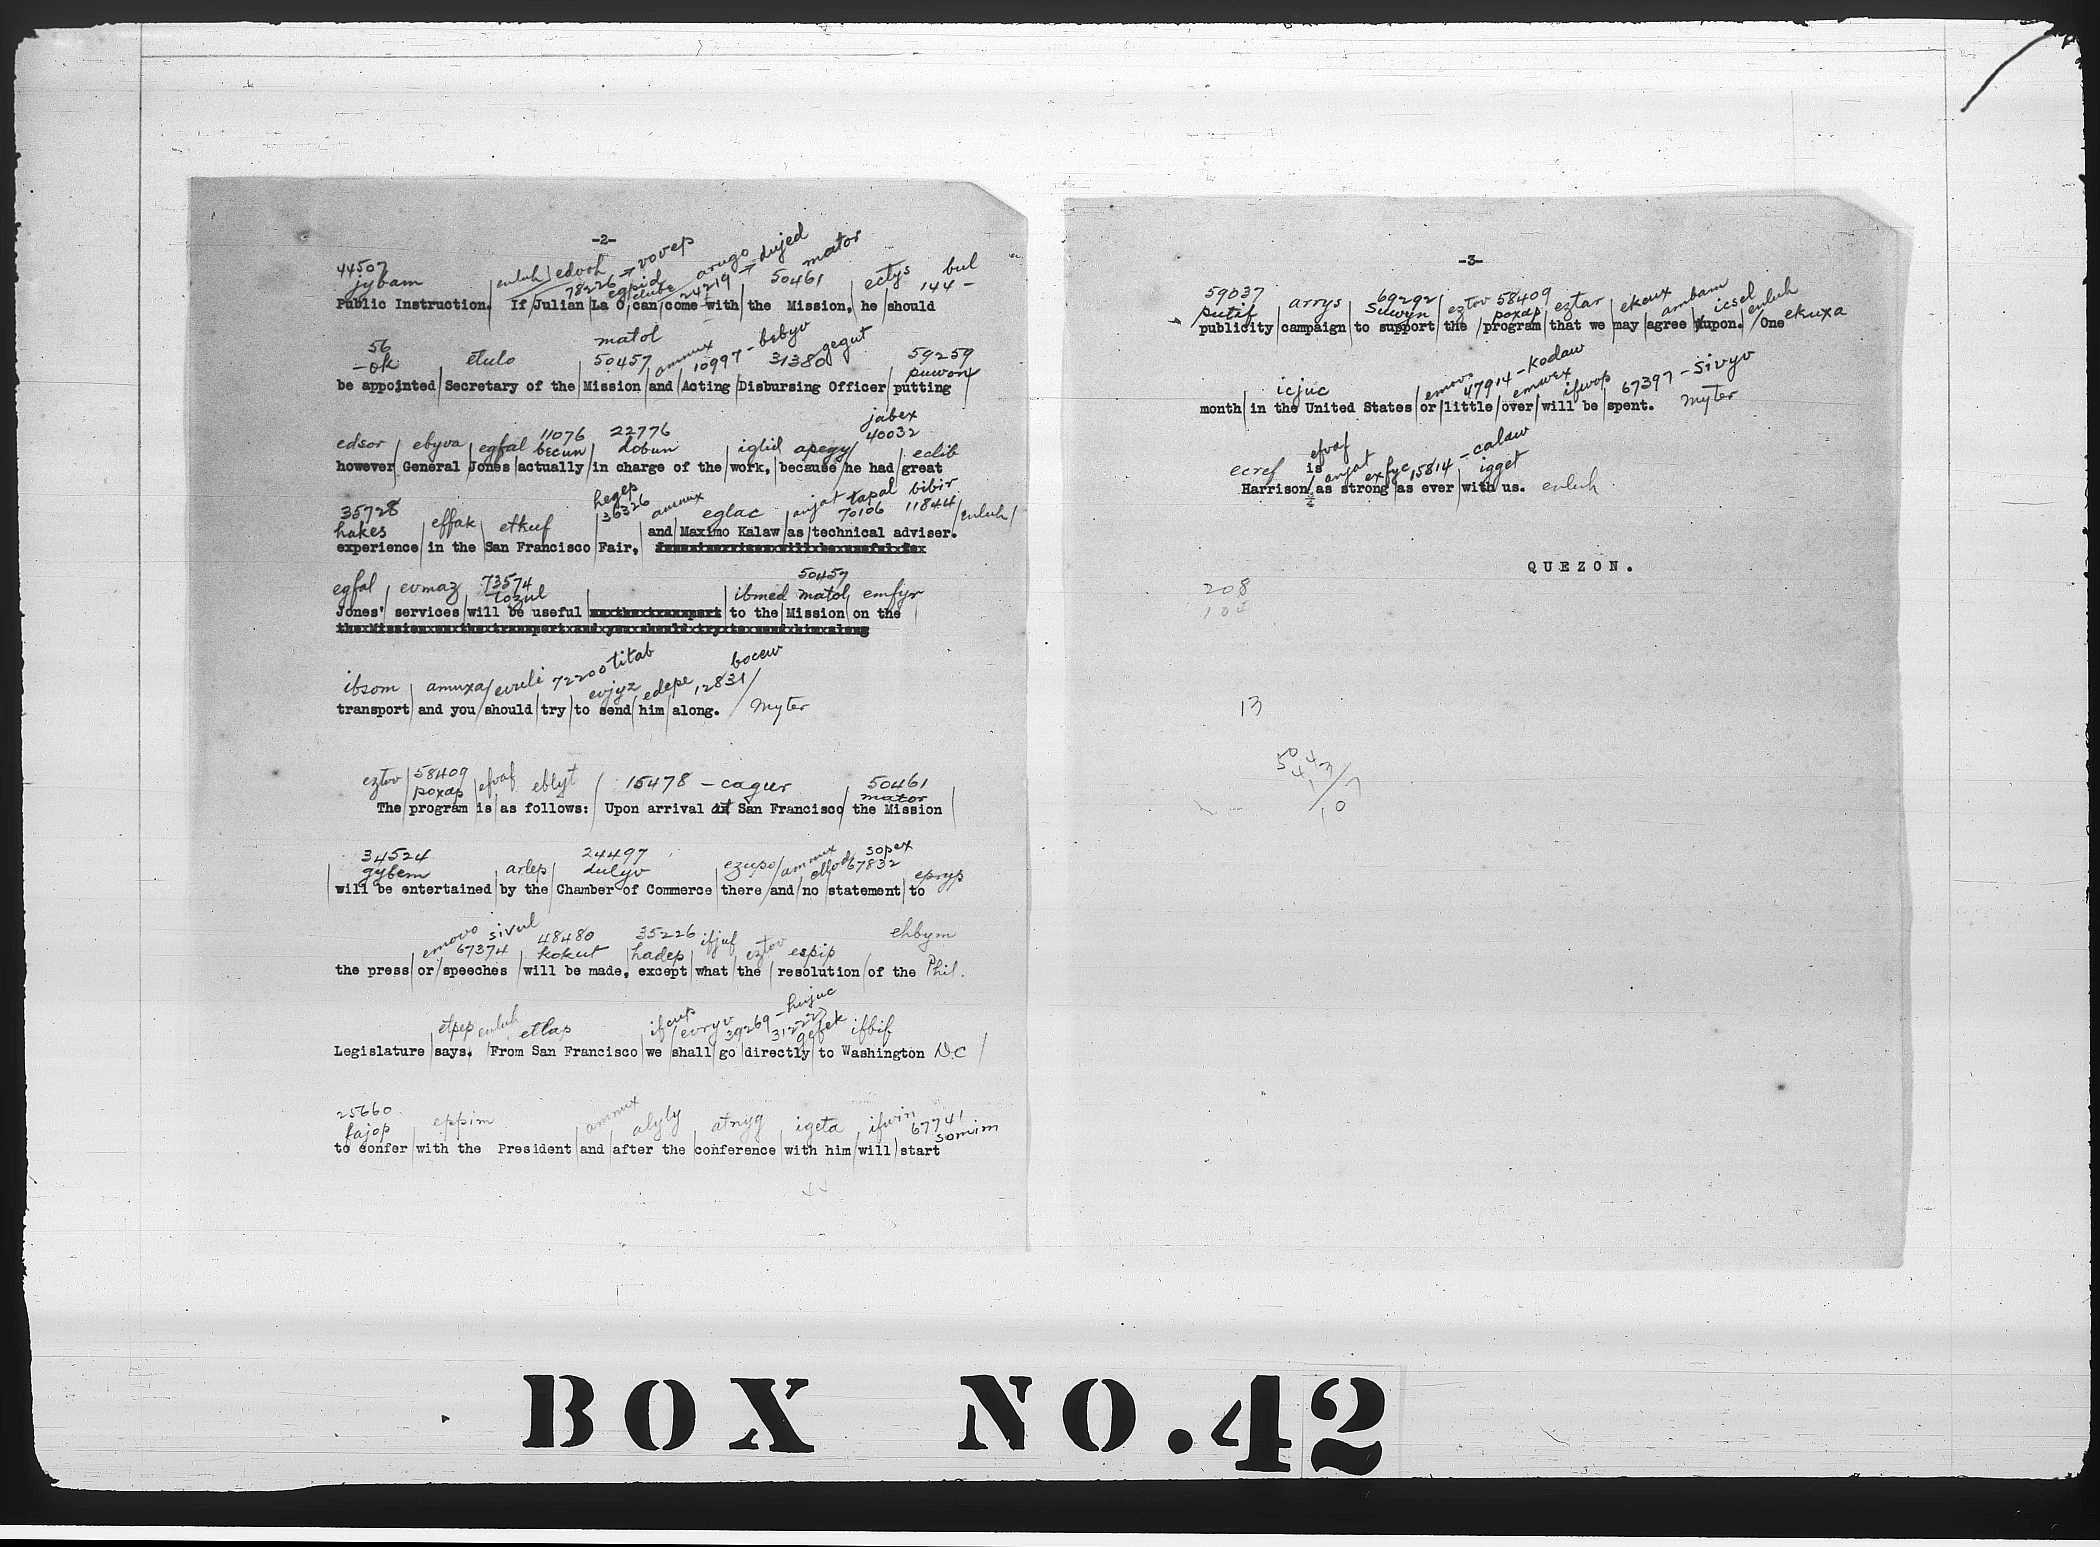 -2-
44507 vovep arugo dujed mator
jybam enluh edorh 78226 → egpid elube 24219 → 50461 ectys 144 - bul
Public Instruction. If Julian La O, can come with the Mission, he should
56 matol
- ok etulo 50457 ammux 10997 - bebyv 31380 gegut 59259 puwory
be appointed Secretary of the Mission and Acting Disbursing Officer putting
jabex
edsor ebyva egfal 11076 becun 22776 dobun iglid apegy 40032 eclib
however General Jones actually in charge of the work, because he had great
35728 hegep anjat tapal bibir
hakes effak etkuf 36326 ammux eglac 70106 11844 enluh
and Maximo Kalaw as technical adviser.
experience in the San Francisco Fair,
egfal evmaz 73574 tozul ibmed 50457 matol emfyr
Jones' services will be useful to the Mission on the
ibsom amuxa evreli 72200 titab evjyz edepe 12831 bocew
transport and you should try to send him along. Myter
eztov 58409 poxap efvaf eblyt 15478 - cagur 50461 mator
The program is as follows: Upon arrival at San Francisco the Mission
34524 24497 sopex
gybem arlep dulyv ezupo ammux ellod 67832 epryp
will be entertained by the Chamber of Commerce there and no statement to
emovo sivul 48480 35226 ehbym
67374 kokut hadep ifjuf eztov espip
the press or speeches will be made, except what the resolution of the Phil.
etpep enluh etlap ifcup evryv 39269 - hujuc 31222 gefek ifbif
Legislature says. From San Francisco we shall go directly to Washington D.C
25660
fajop eppim ammux alyly atnyg igeta ifwin 67741 somim
to confer with the President and after the conference with him will start
-3-
59037 69292
putif arrys suwyn eztov 58409 poxap eztar ekeux ambam icsel enluh
publicity campaign to support the program that we may agree upon. One ekuxa
icjuc emovo 47914 - kodaw emwex ifwop 67397 - sivyv
month in the United States or little over will be spent. Myter
efvaf
ecref is anjat exfyc 15814 - calaw igget
Harrison as strong as ever with us. enluh
QUEZON.
208
13
BOX NO. 42